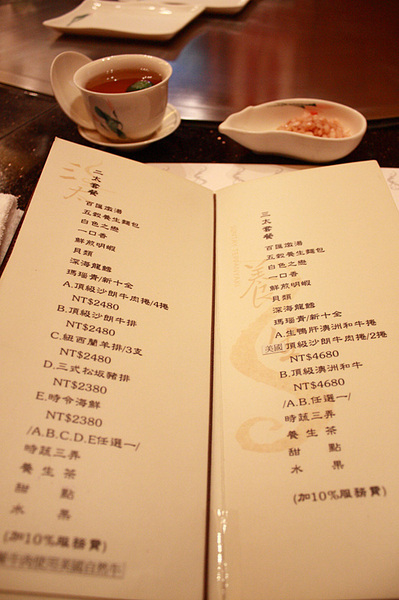 二大套餐
百匯湯湯
五穀養生麵包
白色之戀
一口香
鮮煎明蝦
貝類
深海龍鱈
瑪瑙膏/新十全
A.頂級沙朗牛肉捲/4捲
NT$2480
B.頂級沙朗牛排
NT$2480
C.紐西蘭羊排/3支
NT$2480
D.三式松坂豬排
NT$2380
E.時令海鮮
NT$2380
/A.B.C.D.E任選一/
時蔬三弄
養生茶
甜點
水果
(加10%服務費)
牛肉使用美國自然牛
三大套餐
五穀養生麵包
白色之戀
一口香
鮮煎明蝦
貝類
深海龍鱈
瑪瑙膏/新十全
A.生鴨肝澳洲和牛捲
美國頂級沙朗牛肉捲/2捲
NT$4680
B.頂級澳洲和牛
NT$4680
/A.B.任選一/
時蔬三弄
養生茶
甜點
水果
(加10%服務費)